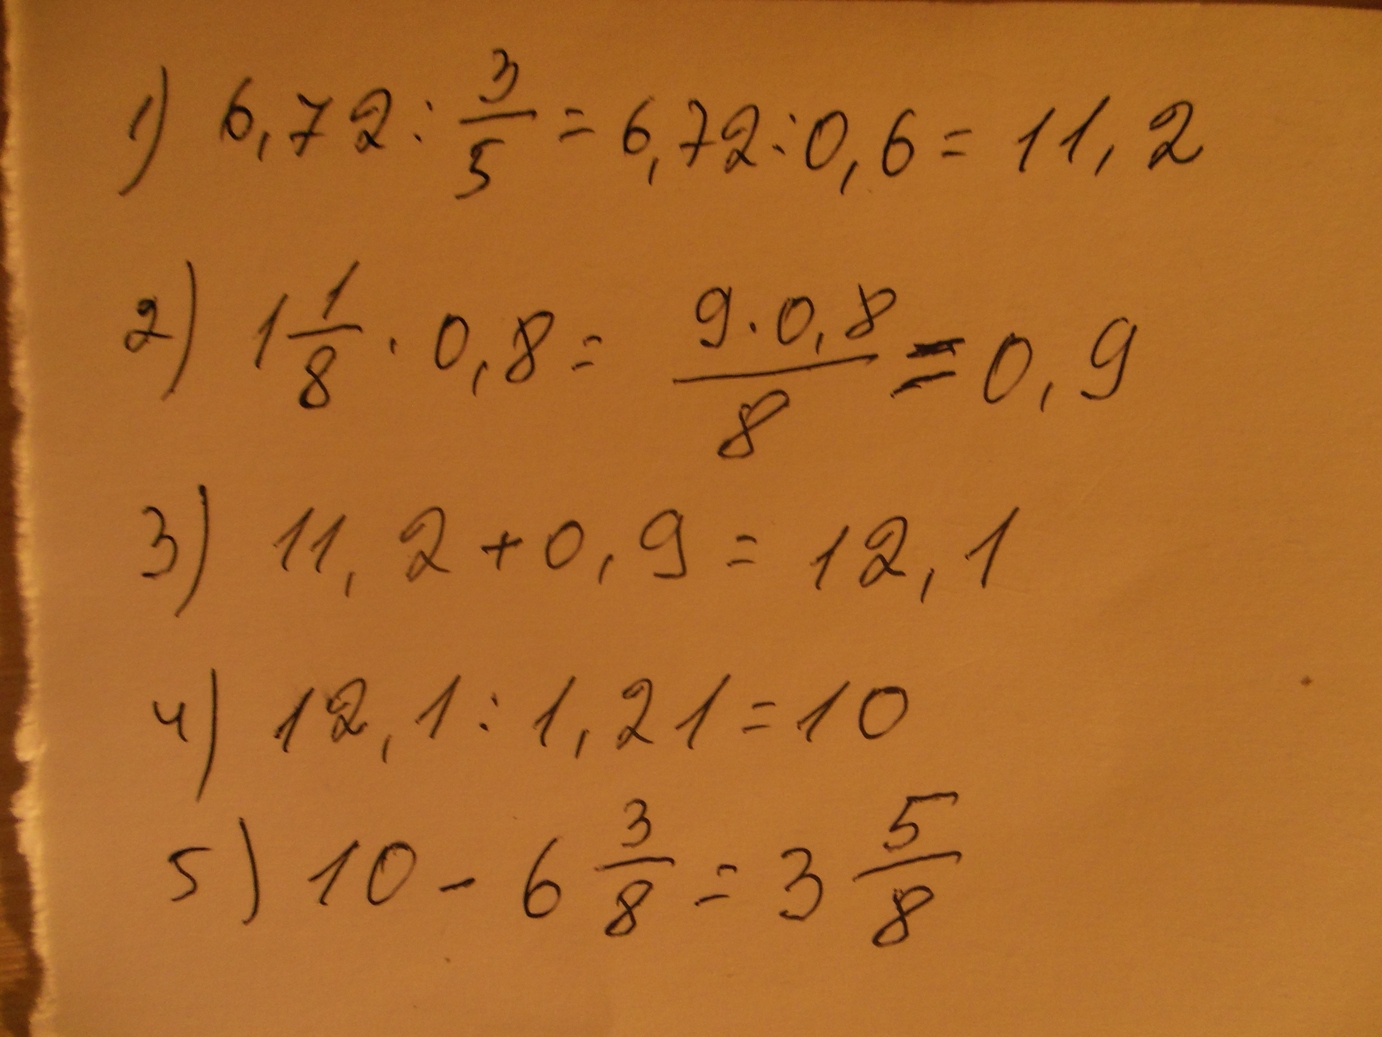 1) 6,72 : 3/5 = 6,72 : 0,6 = 11,2
2) 1 1/8 · 0,8 = 9·0,8/8 = 0,9
3) 11,2 + 0,9 = 12,1
4) 12,1 : 1,21 = 10
5) 10 - 6 3/8 = 3 5/8